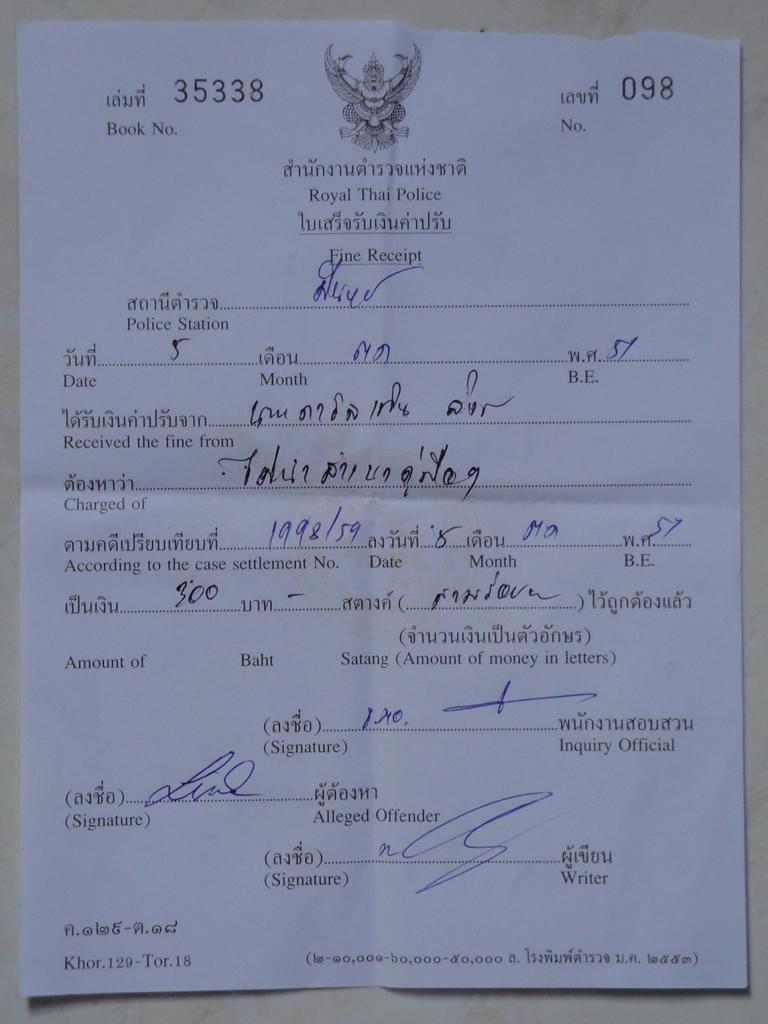 เล่มที่ 35338 เลขที่ 098
Book No. No.
สำนักงานตำรวจแห่งชาติ
Royal Thai Police
ใบเสร็จรับเงินค่าปรับ
Fine Receipt
สถานีตำรวจ
Police Station
วันที่ 5 เดือน ตค พ.ศ.
Date Month B.E.
ได้รับเงินค่าปรับจาก
Received the fine from
ต้องหาว่า ไม่นำสำเนาคู่มือฯ
Charged of
ตามคดีเปรียบเทียบที่ 1998/59 ลงวันที่ 5 เดือน ตค พ.ศ.
According to the case settlement No. Date Month B.E.
เป็นเงิน 300 บาท - สตางค์ (สามร้อย) ไว้ถูกต้องแล้ว
(จำนวนเงินเป็นตัวอักษร)
Amount of Baht Satang (Amount of money in letters)
(ลงชื่อ) พนักงานสอบสวน
(Signature) Inquiry Official
(ลงชื่อ) ผู้ต้องหา
(Signature) Alleged Offender
(ลงชื่อ) ผู้เขียน
(Signature) Writer
ค.๑๒๙-ต.๑๘
Khor.129-Tor.18 (๒-๑๐,๐๐๑-๖๐,๐๐๐-๕๐,๐๐๐ ล. โรงพิมพ์ตำรวจ ม.ค. ๒๕๕๓)